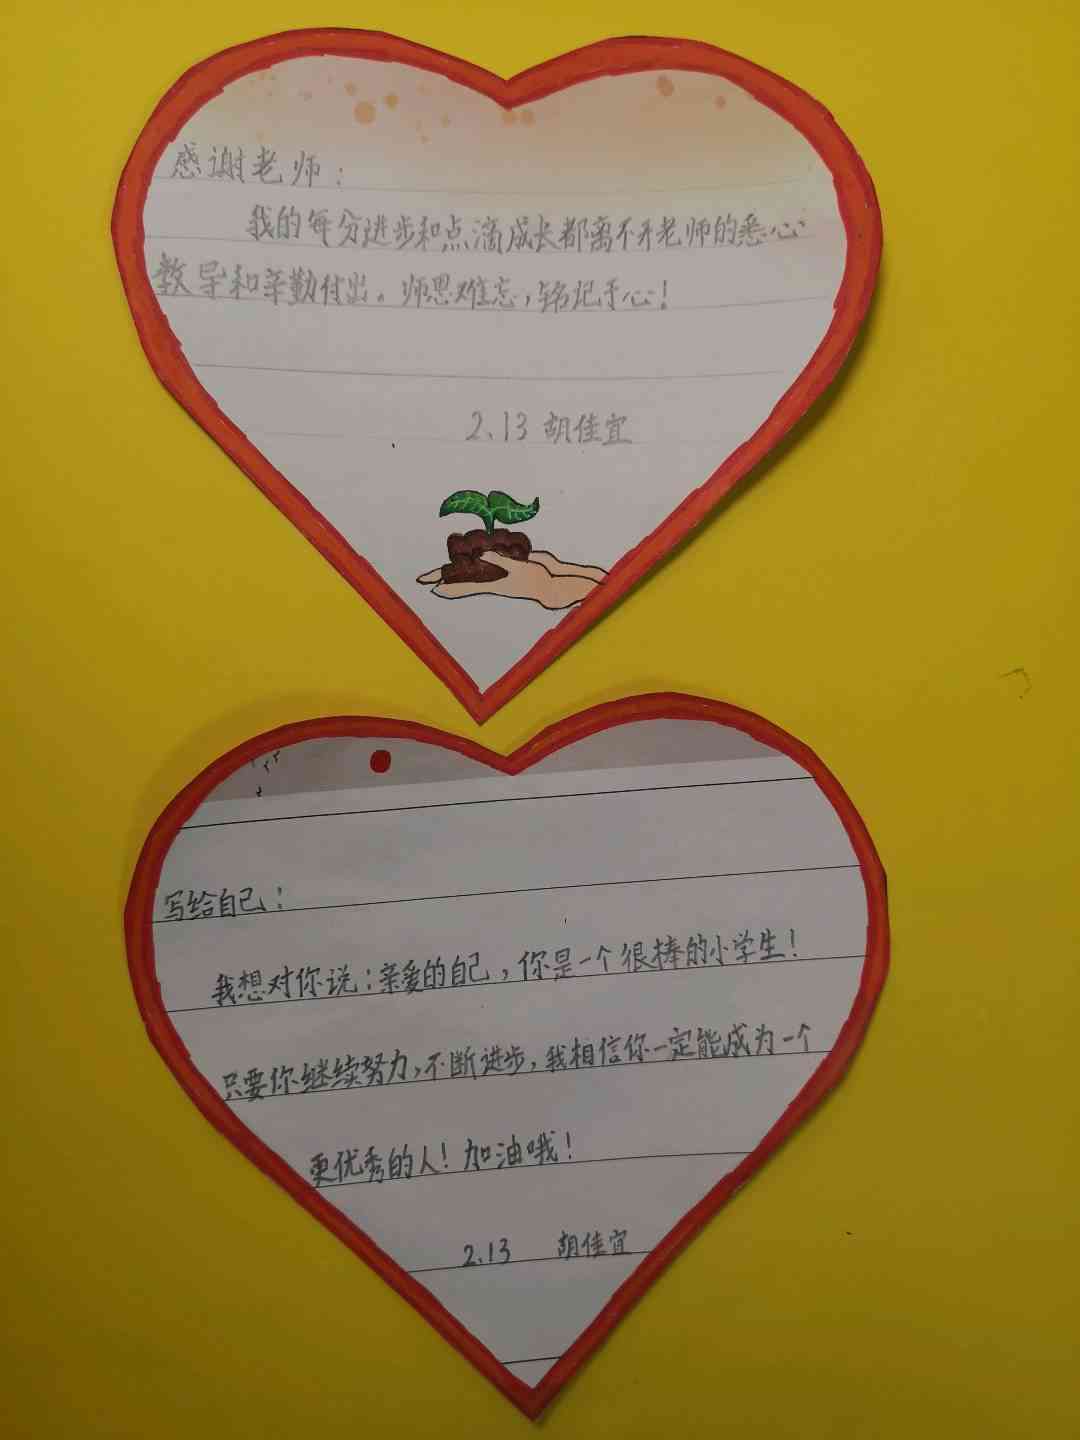 感谢老师：
我的每分进步和点滴成长都离不开老师的悉心
教导和辛勤付出。师恩难忘，铭记于心！
2.13 胡佳宜
写给自己：
我想对你说：亲爱的自己，你是一个很棒的小学生！
只要你继续努力，不断进步，我相信你一定能成为一个
更优秀的人！加油哦！
2.13 胡佳宜